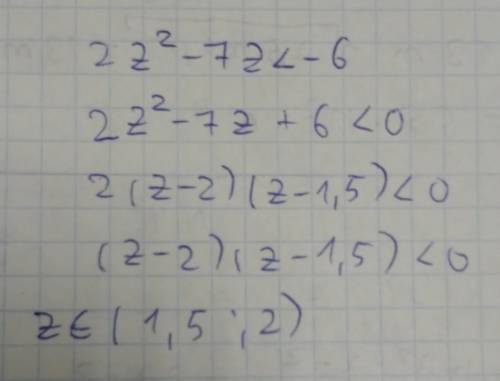 2z² - 7z < -6
2z² - 7z + 6 < 0
2(z-2)(z-1,5) < 0
(z-2)(z-1,5) < 0
z ∈ (1,5 ; 2)